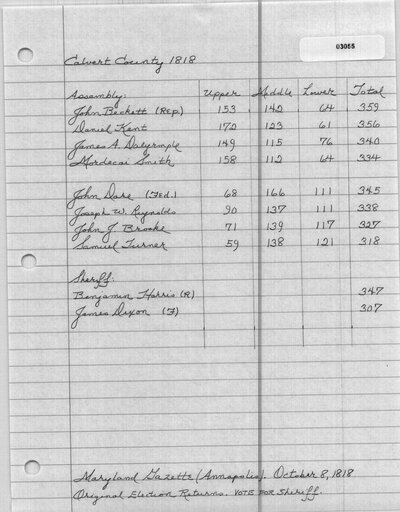 03055
Calvert County 1818
Assembly: Upper Middle Lower Total
John Beckett (Rep.) 153 142 64 359
Daniel Kent 172 123 61 356
James A. Dalrymple 149 115 76 340
Mordecai Smith 158 112 64 334
John Dare (Fed.) 68 166 111 345
Joseph W. Reynolds 90 137 111 338
John J. Brooke 71 139 117 327
Samuel Turner 59 138 121 318
Sheriff:
Benjamin Harris (R) 347
James Dixon (F) 307
Maryland Gazette (Annapolis). October 8, 1818.
Original Election Returns. VOTE FOR Sheriff.